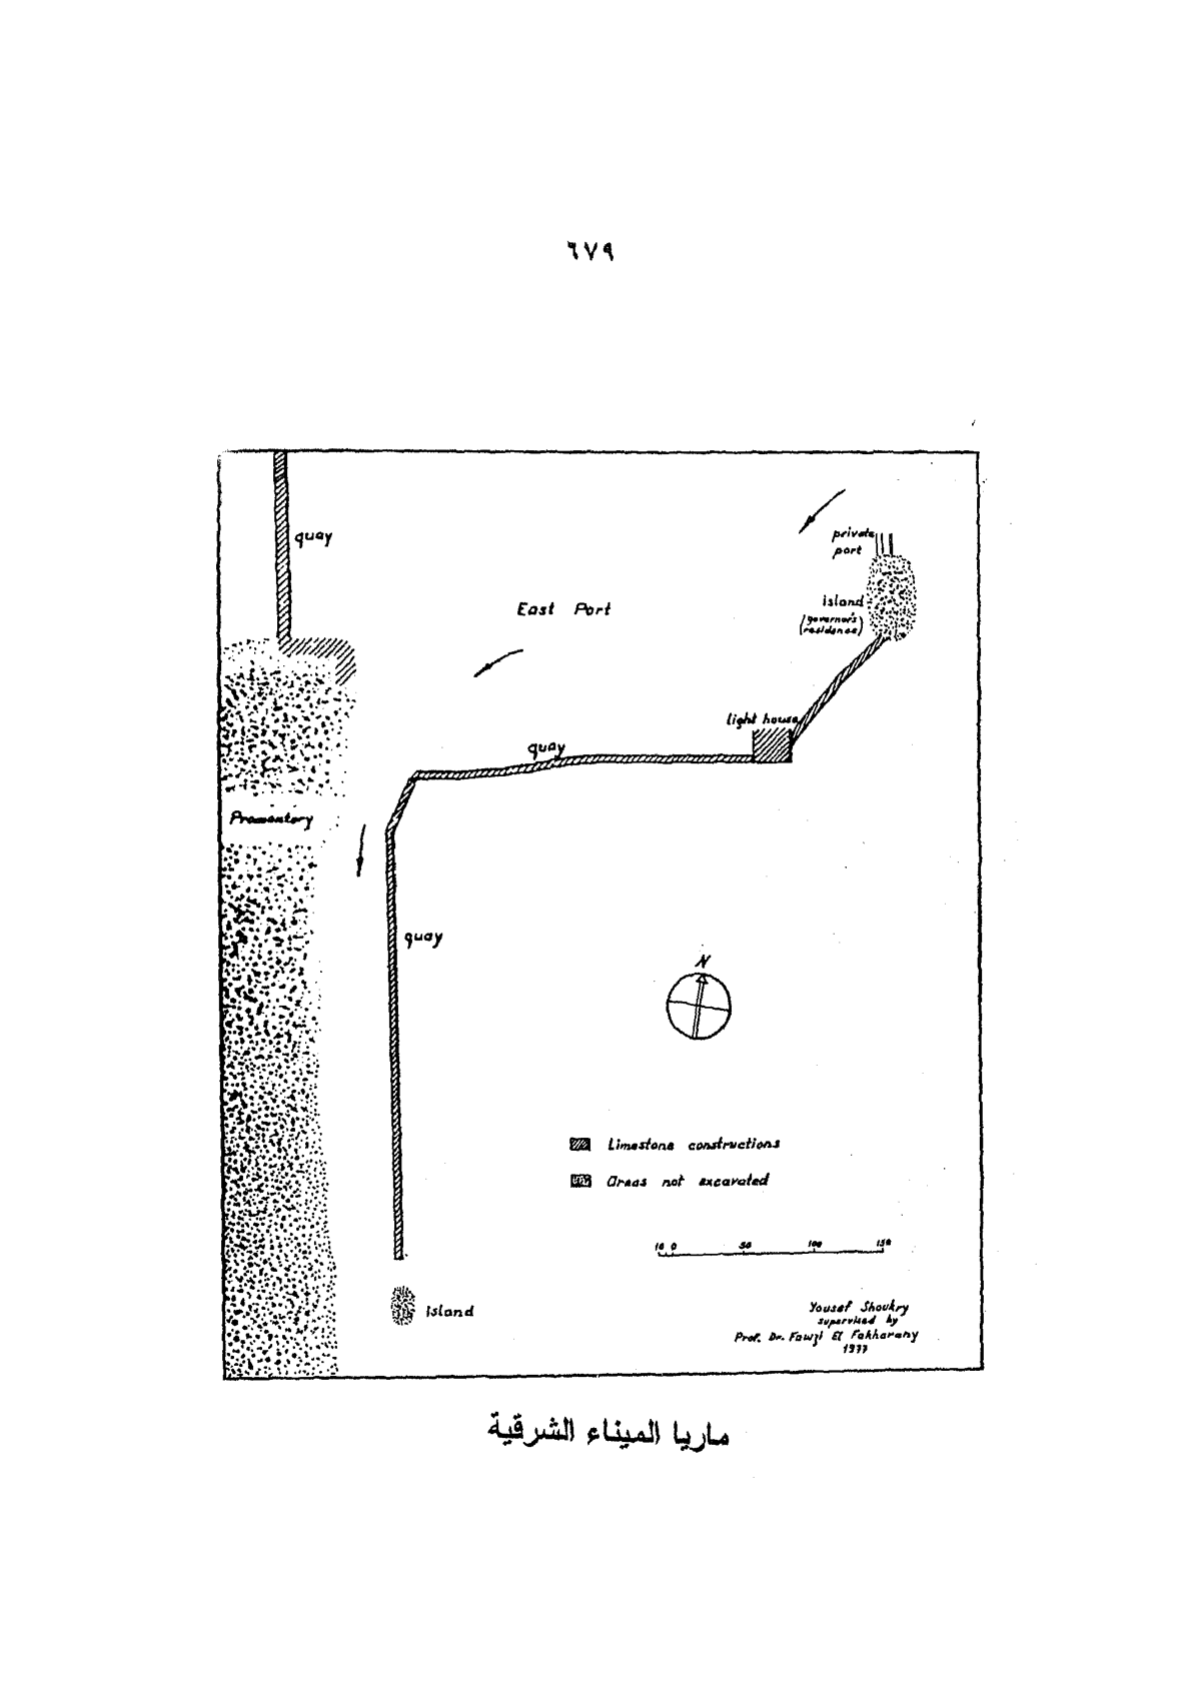 ٦٧٩
quay
private
port
East Port
island
(governor's
residence)
light house
quay
Promontory
quay
N
Limestone constructions
Areas not excavated
10 0 50 100 150
island
Yousef Shoukry
supervised by
Prof. Dr. Fawzi El Fakharany
1977
ماريا الميناء الشرقية